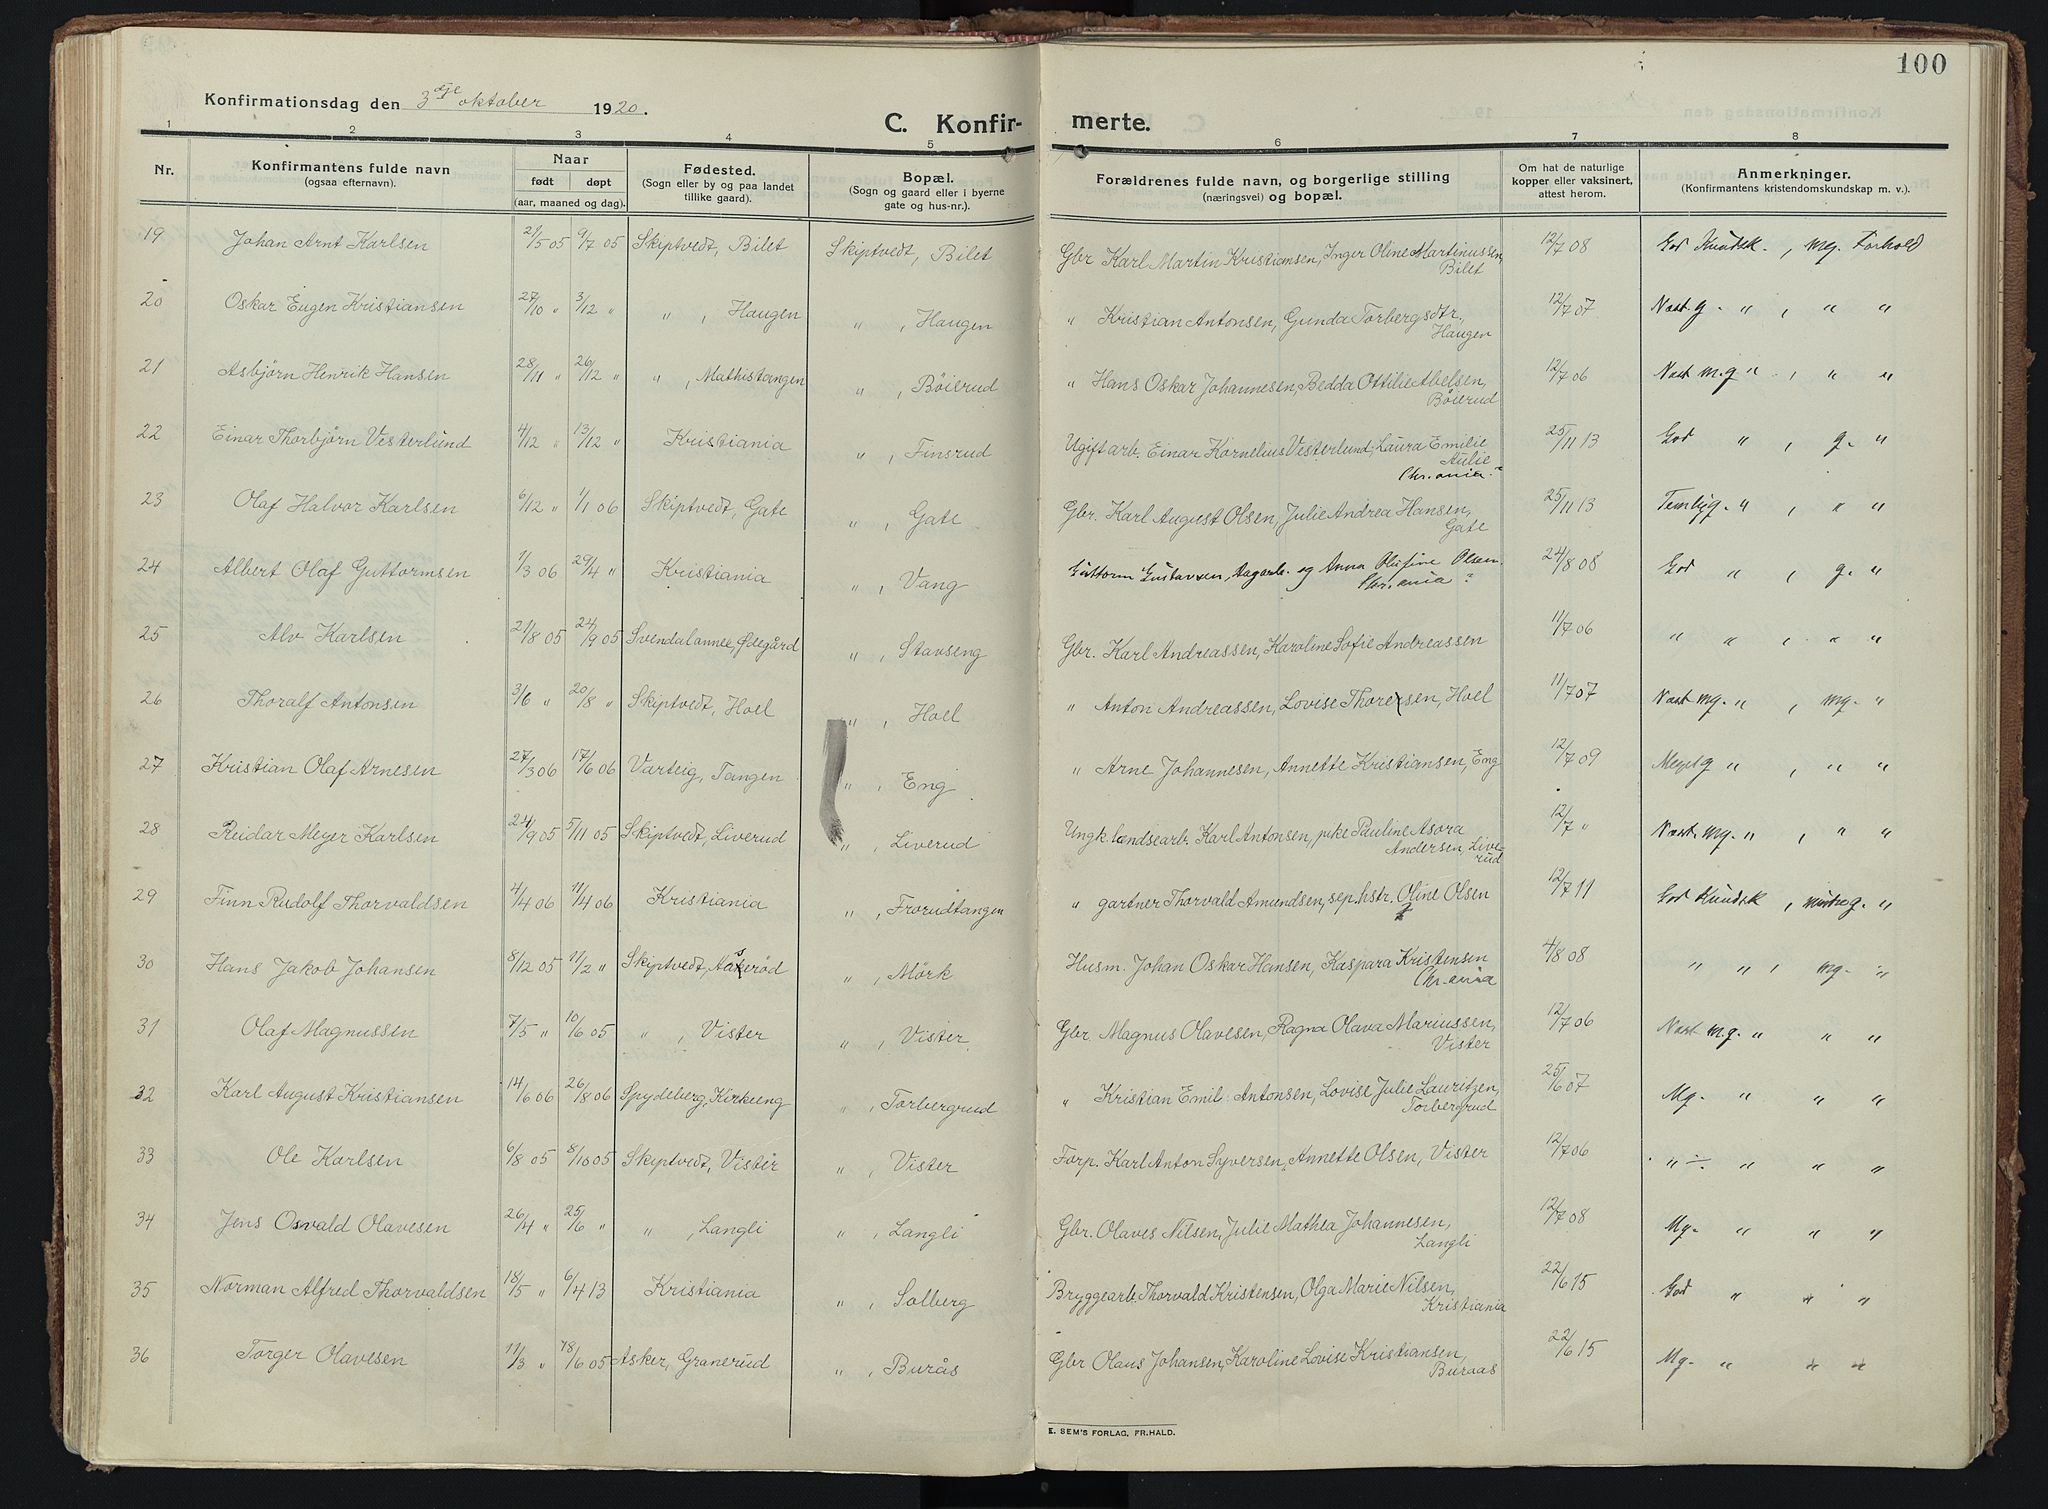 100
Konfirmationsdag den 3dje oktober 1920.
C. Konfir- merte.
1 2 3 4 5 6 7 8
Nr. Konfirmantens fulde navn (ogsaa efternavn). Naar født døpt (aar, maaned og dag). Fødested. (Sogn eller by og paa landet tillike gaard). Bopæl. (Sogn og gaard eller i byerne gate og hus-nr.). Forældrenes fulde navn, og borgerlige stilling (næringsvei) og bopæl. Om hat de naturlige kopper eller vaksinert, attest herom. Anmerkninger. (Konfirmantens kristendomskundskap m. v.).
19 Johan Arnt Karlsen 21/5 05 9/7 05 Skiptvedt, Bilet Skiptvedt, Bilet Gbr Karl Martin Kristiansen, Inger Oline Martinussen, Bilet 12/7 08 God Kundsk. , mg. Forhold
20 Oskar Eugen Kristiansen 27/10 " 3/12 " " , Haugen " , Haugen " Kristian Antonsen, Gunda Torbergsdtr, Haugen 12/7 07 Næst. g - " , " "
21 Asbjørn Henrik Hansen 28/11 " 26/12 " " , Mathistangen " , Böierud " Hans Oskar Johannesen, Bedda Ottilie Abelsen, Böierud 12/7 06 Næst m.g " , " "
22 Einar Thorbjørn Vesterlund 4/12 " 13/12 " Kristiania " , Finsrud Ugift arb. Einar Kornelius Vesterlund, Laura Emilie Aulie Chr.ania? 25/11 13 God " , g. "
23 Olaf Halvor Karlsen 6/12 " 1/1 06 Skiptvedt, Gate " , Gate Gbr. Karl August Olsen, Julie Andrea Hansen, Gate 25/11 13 Temlig. " , " "
24 Albert Olaf Guttormsen 1/3 06 29/4 " Kristiania " , Vang Guttorm Gustavsen, Dagarb. og Anna Olufine Olsen. Chr.ania? 24/8 08 God " , g. "
25 Alv Karlsen 21/8 05 24/9 05 Svendalannec, Ødegård " , Stavseng Gbr. Karl Andreassen, Karoline Sofie Andreassen 11/7 06 " " , " "
26 Thoralf Antonsen 3/6 " 20/8 " Skiptvedt, Hoel " , Hoel " Anton Andreassen, Lovise Thoresen, Hoel 11/7 07 Næst mg. " , mg. "
27 Kristian Olaf Arnesen 27/3 06 17/6 06 Varteig, Tangen " , Eng " Arne Johannesen, Annette Kristiansen, Eng 12/7 09 Meget g " , " "
28 Reidar Meyer Karlsen 24/9 05 5/11 05 Skiptvedt, Liverud " , Liverud Ungk. lændsearb. Karl Antonsen, pike Pauline Asora Andersen, Liverud 12/7 " Næst. mg. " , " "
29 Finn Rudolf Thorvaldsen 4/4 06 11/4 06 Kristiania " , Frorudtangen " gartner Thorvald Amundsen, sep. hstr. Oline Olsen 12/7 11 God Kundsk , g. "
30 Hans Jakob Johansen 8/12 05 11/2 " Skiptvedt, Aaserød " , Mörk Husm. Johan Oskar Hansen, Kaspara Kristensen Chr.ania 4/8 08 " " , mg. "
31 Olaf Magnussen 7/5 " 10/6 05 " , Vister " , Vister Gbr. Magnus Olavesen, Ragna Olava Mariussen, Vister 12/7 06 Næst m.g. " " "
32 Karl August Kristiansen 14/6 06 26/8 06 Spydeberg, Kirkeeng " , Torbergrud " Kristian Emil Antonsen, Lovise Julie Lauritzen, Torbergrud 25/6 07 Mg. " " "
33 Ole Karlsen 6/8 05 8/10 05 Skiptvedt, Vister " , Vister Forp. Karl Anton Syversen, Annette Olsen, Vister 12/7 06 " ÷. " " "
34 Jens Osvald Olavesen 26/4 " 25/6 " " , Langli " , Langli Gbr. Olaves Nilsen, Julie Mathea Johannesen, Langli 12/7 08 Mg. " " "
35 Norman Alfred Thorvaldsen 18/5 " 6/4 13 Kristiania " , Solberg Bryggearb. Thorvald Kristensen, Olga Marie Nilsen, Kristiania 22/6 15 God " " "
36 Torger Olavesen 11/3 " 18/6 05 Asker, Granerud " , Burås Gbr Olaus Johansen, Karoline Lovise Kristiansen, Buraas 22/6 15 Mg. " " "
E. SEM'S FORLAG, FR.HALD.